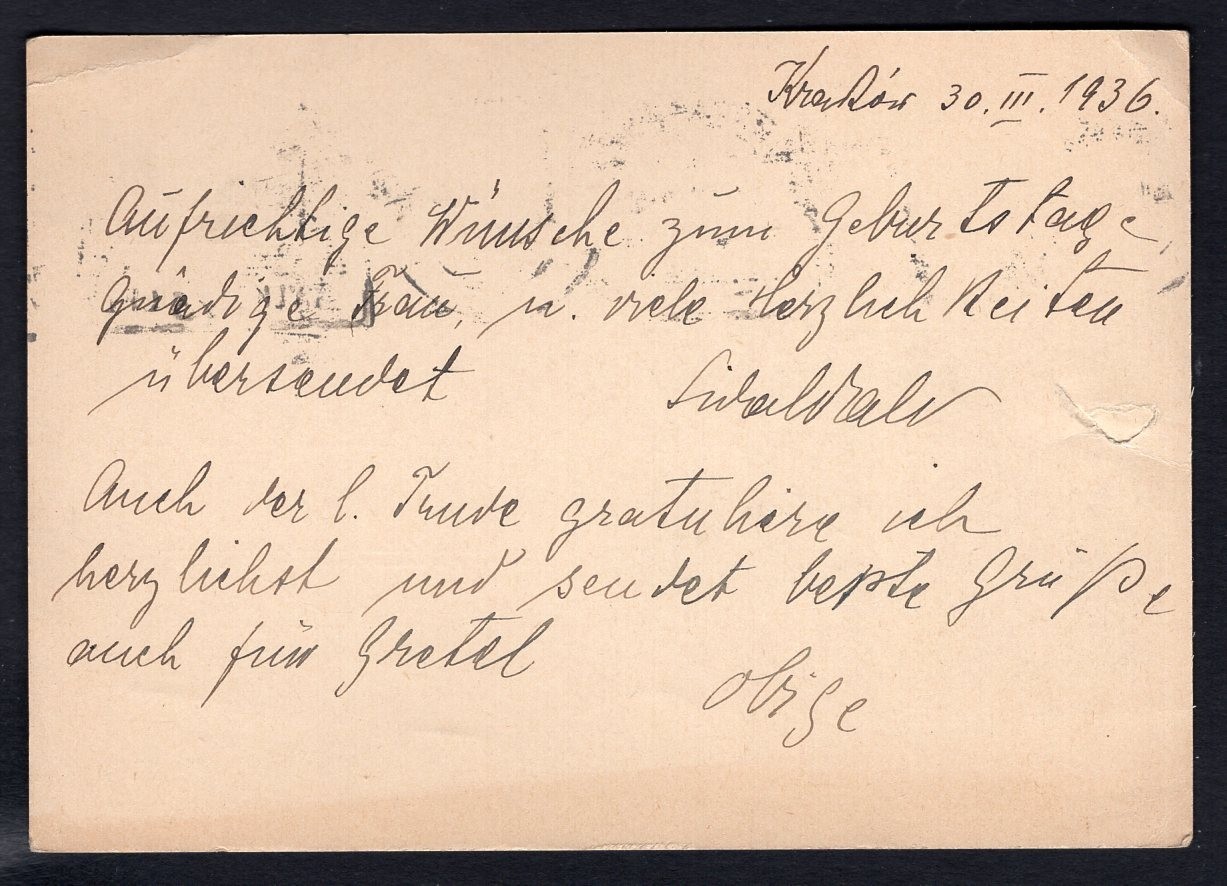 Kraków 30.III.1936.
Aufrichtige Wünsche zum Geburtstage
gnädige Frau, u. viele Herzlichkeiten
übersendet
Auch der l. Trude gratuliere ich
herzlichst und sendet beßte Grüße
auch für Gretel
Obige